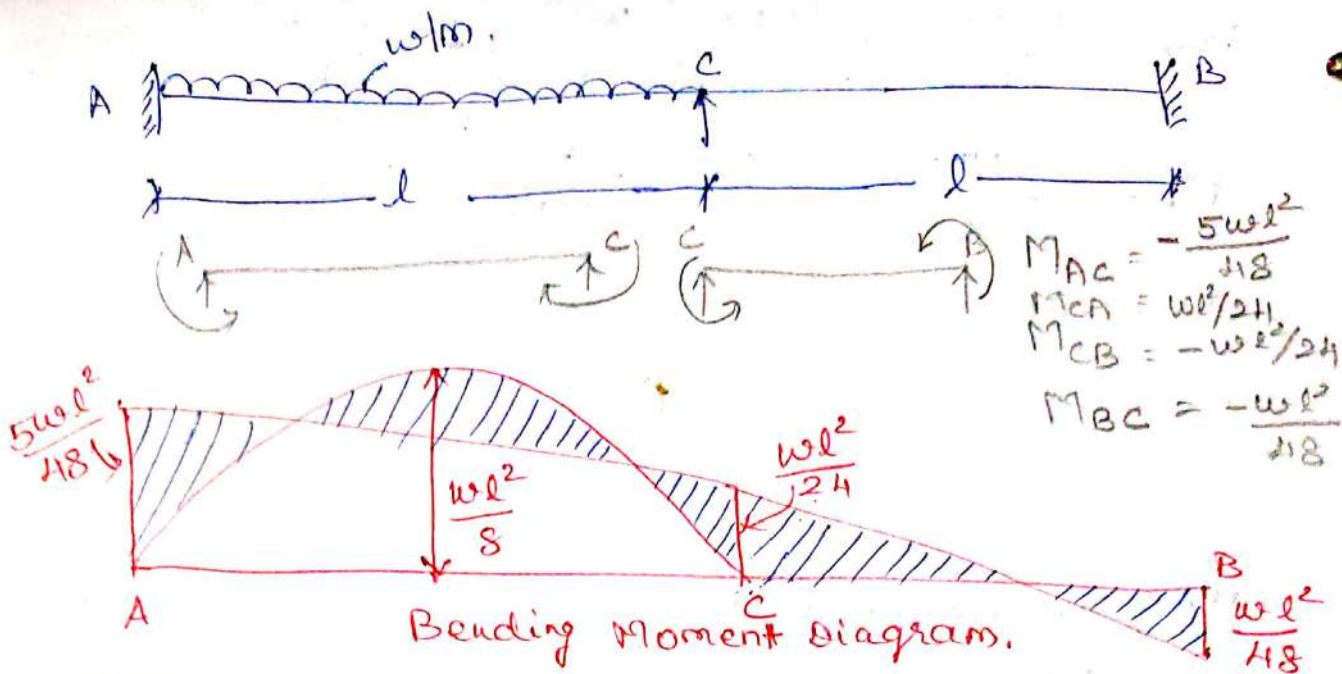 w/m.
A C B
l l
A C C B
M_AC = -5wl²/48
M_CA = wl²/24
M_CB = -wl²/24
M_BC = -wl²/48
5wl²/48
wl²/8
wl²/24
A C B
wl²/48
Bending Moment Diagram.